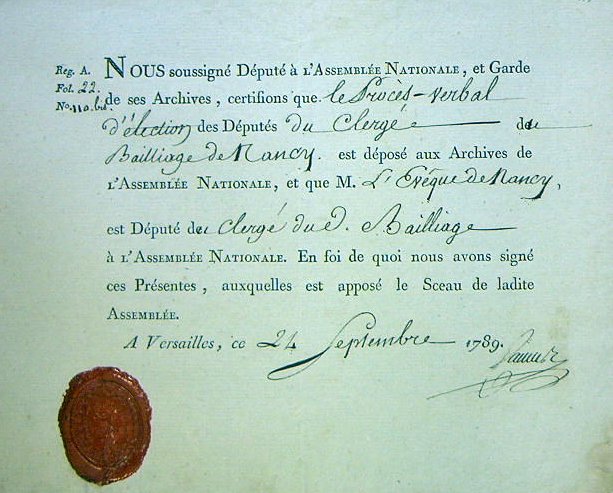 Reg. A.
Fol. 22.
No. 110. bis.
NOUS soussigné Député à L'ASSEMBLÉE NATIONALE, et Garde
de ses Archives, certifions que le Procès-verbal
d'élection des Députés du Clergé du
Bailliage de Nancy. est déposé aux Archives de
L'ASSEMBLÉE NATIONALE, et que M. L'Evêque de Nancy,
est Député du Clergé du d. Bailliage
à L'ASSEMBLÉE NATIONALE. En foi de quoi nous avons signé
ces Présentes, auxquelles est apposé le Sceau de ladite
ASSEMBLÉE.
A Versailles, ce 24 Septembre 1789.